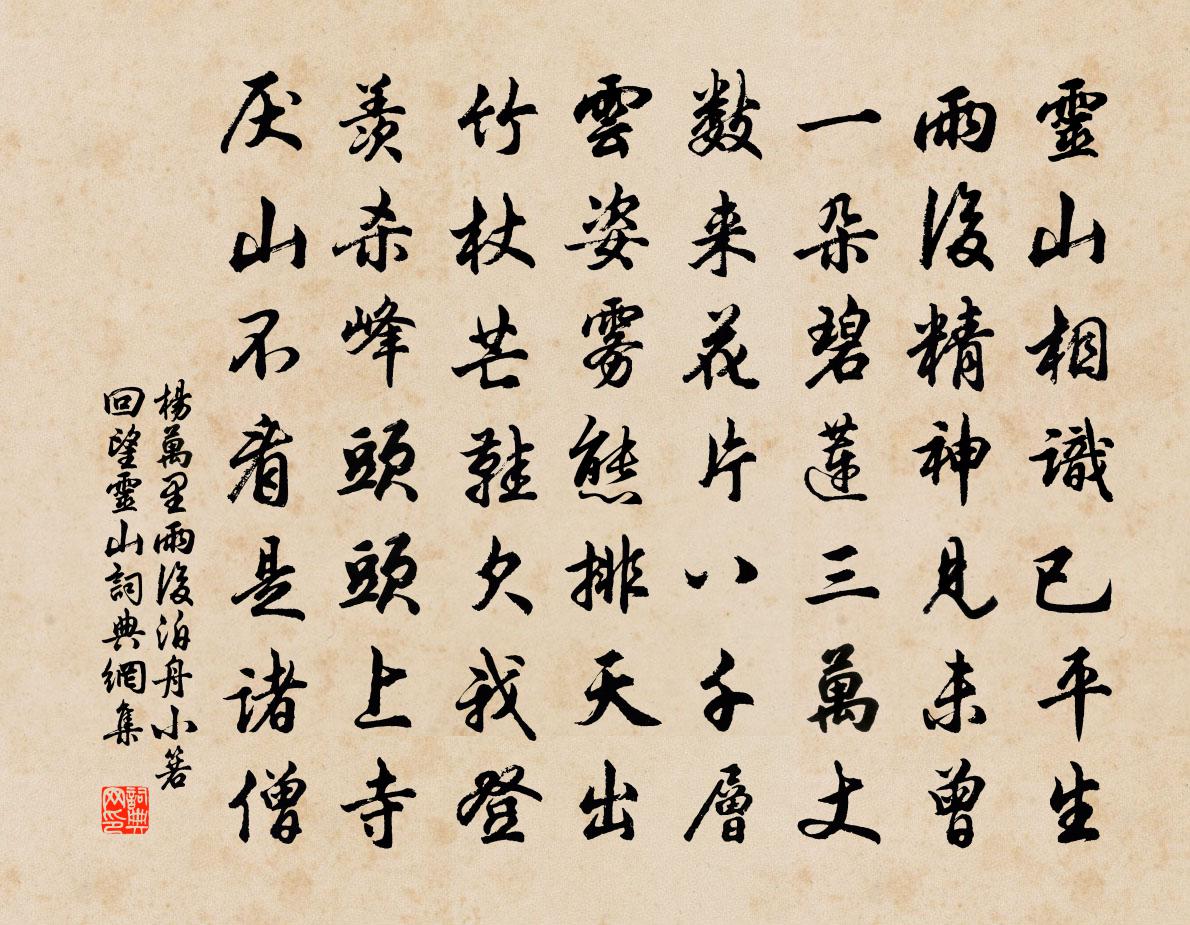 靈山相識已平生
雨後精神見未曾
一朵碧蓮三萬丈
數来花片八千層
雲姿霧態排天出
竹杖芒鞋欠我登
羨杀峰頭頭上寺
厌山不看是諸僧
楊萬里雨後泊舟小箬
回望靈山詞典網集
詞典
网印